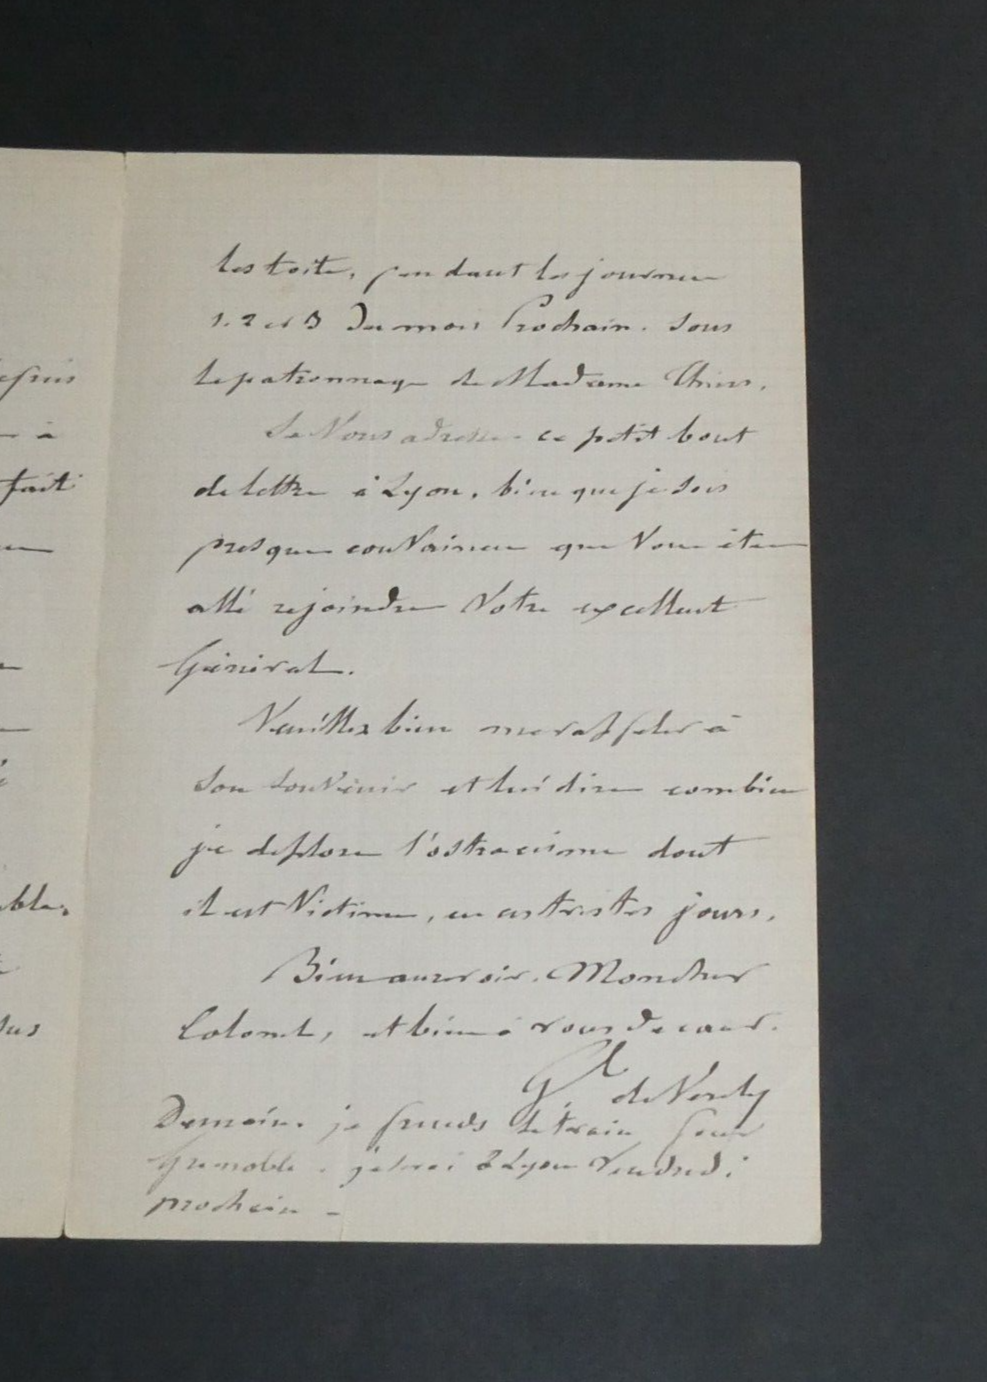 depuis
à
fait
ble,
sus
les toits, pendant les journées
1. 2 et 3 du mois Prochain. sous
le patronnage de Madame Thiers.
Je Vous adresse ce petit bout
de lettre à Lyon, bien que je sois
presque conVaincu que Vous êtes
allé rejoindre Votre excellent
Général.
Veuillez bien me rappeler à
son souVenir et lui dire combien
je deplore l'ostracisme dont
il est Victime, en ces tristes jours.
Bien au revoir. Mon cher
Colonel, et bien à vous de cœur.
Gl de
Demain. je prends le train pour
Grenoble. je serai à Lyon Vendredi
prochain -